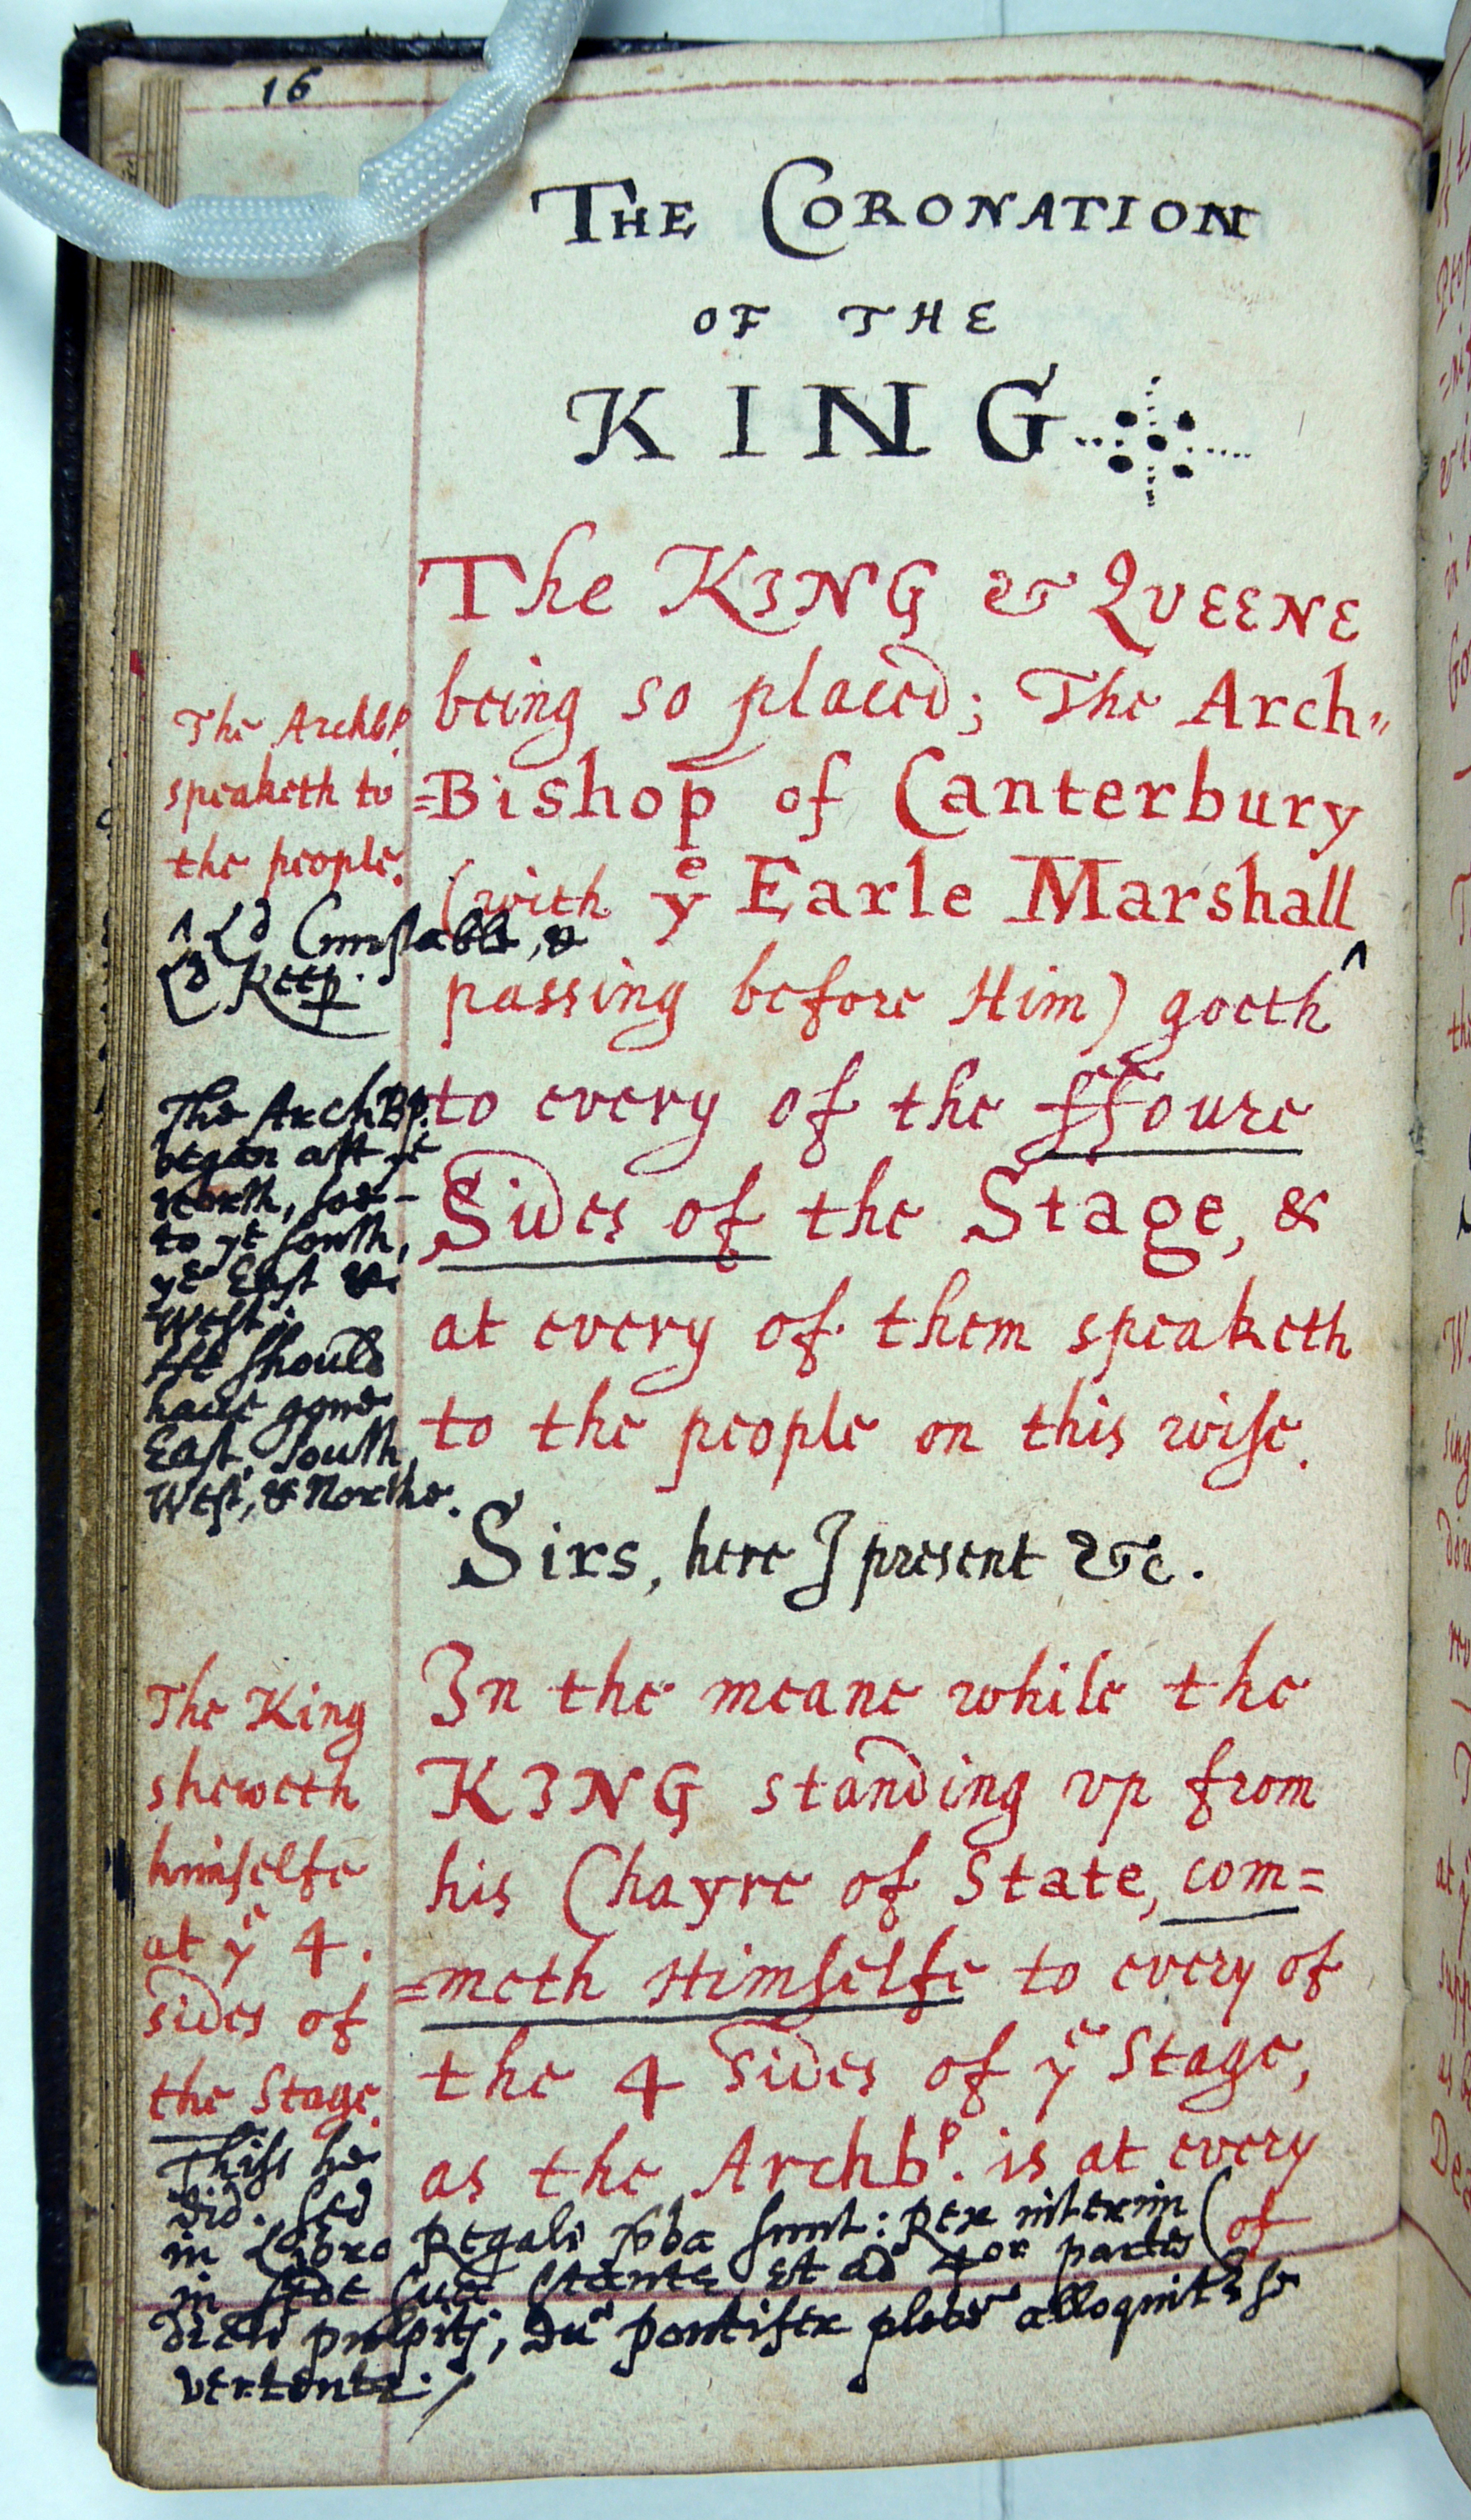 16
THE CORONATION
OF THE
KING
The KING & QVEENE
being so placed; The Arch=
=Bishop of Canterbury
(with yͤ Earle Marshall ^
passing before Him) goeth
to every of the ffoure
Sides of the Stage, &
at every of them speaketh
to the people on this wiſe.
Sirs, here I present &c.
In the meane while the
KING standing vp from
his Chayre of State, com=
=meth Himſelfe to every of
the 4 sides of yͤ Stage,
as the Archbᵖ. is at every
(of
The Archbᵖ.
speaketh to
the people.
^ Ld Conſtable, &
Ld Keep.
The ArchBp.
began att ye
North, ſoe-
to ye ſouth,
ye Eaſt &
Weſt:
He ſhould
haue gone
Eaſt, South,
Weſt, & Northe.
The King
sheweth
himſelfe
at yͤ 4.
sides of
the Stage.
Thiſs he
did. ſed
in Libro Regali vba ſunt: Rex interim
in ſede ſua ſtante, et ad 4or partes
dicti pulpiti, Dū pontifex plebē alloquitʳ ſe
vertente./